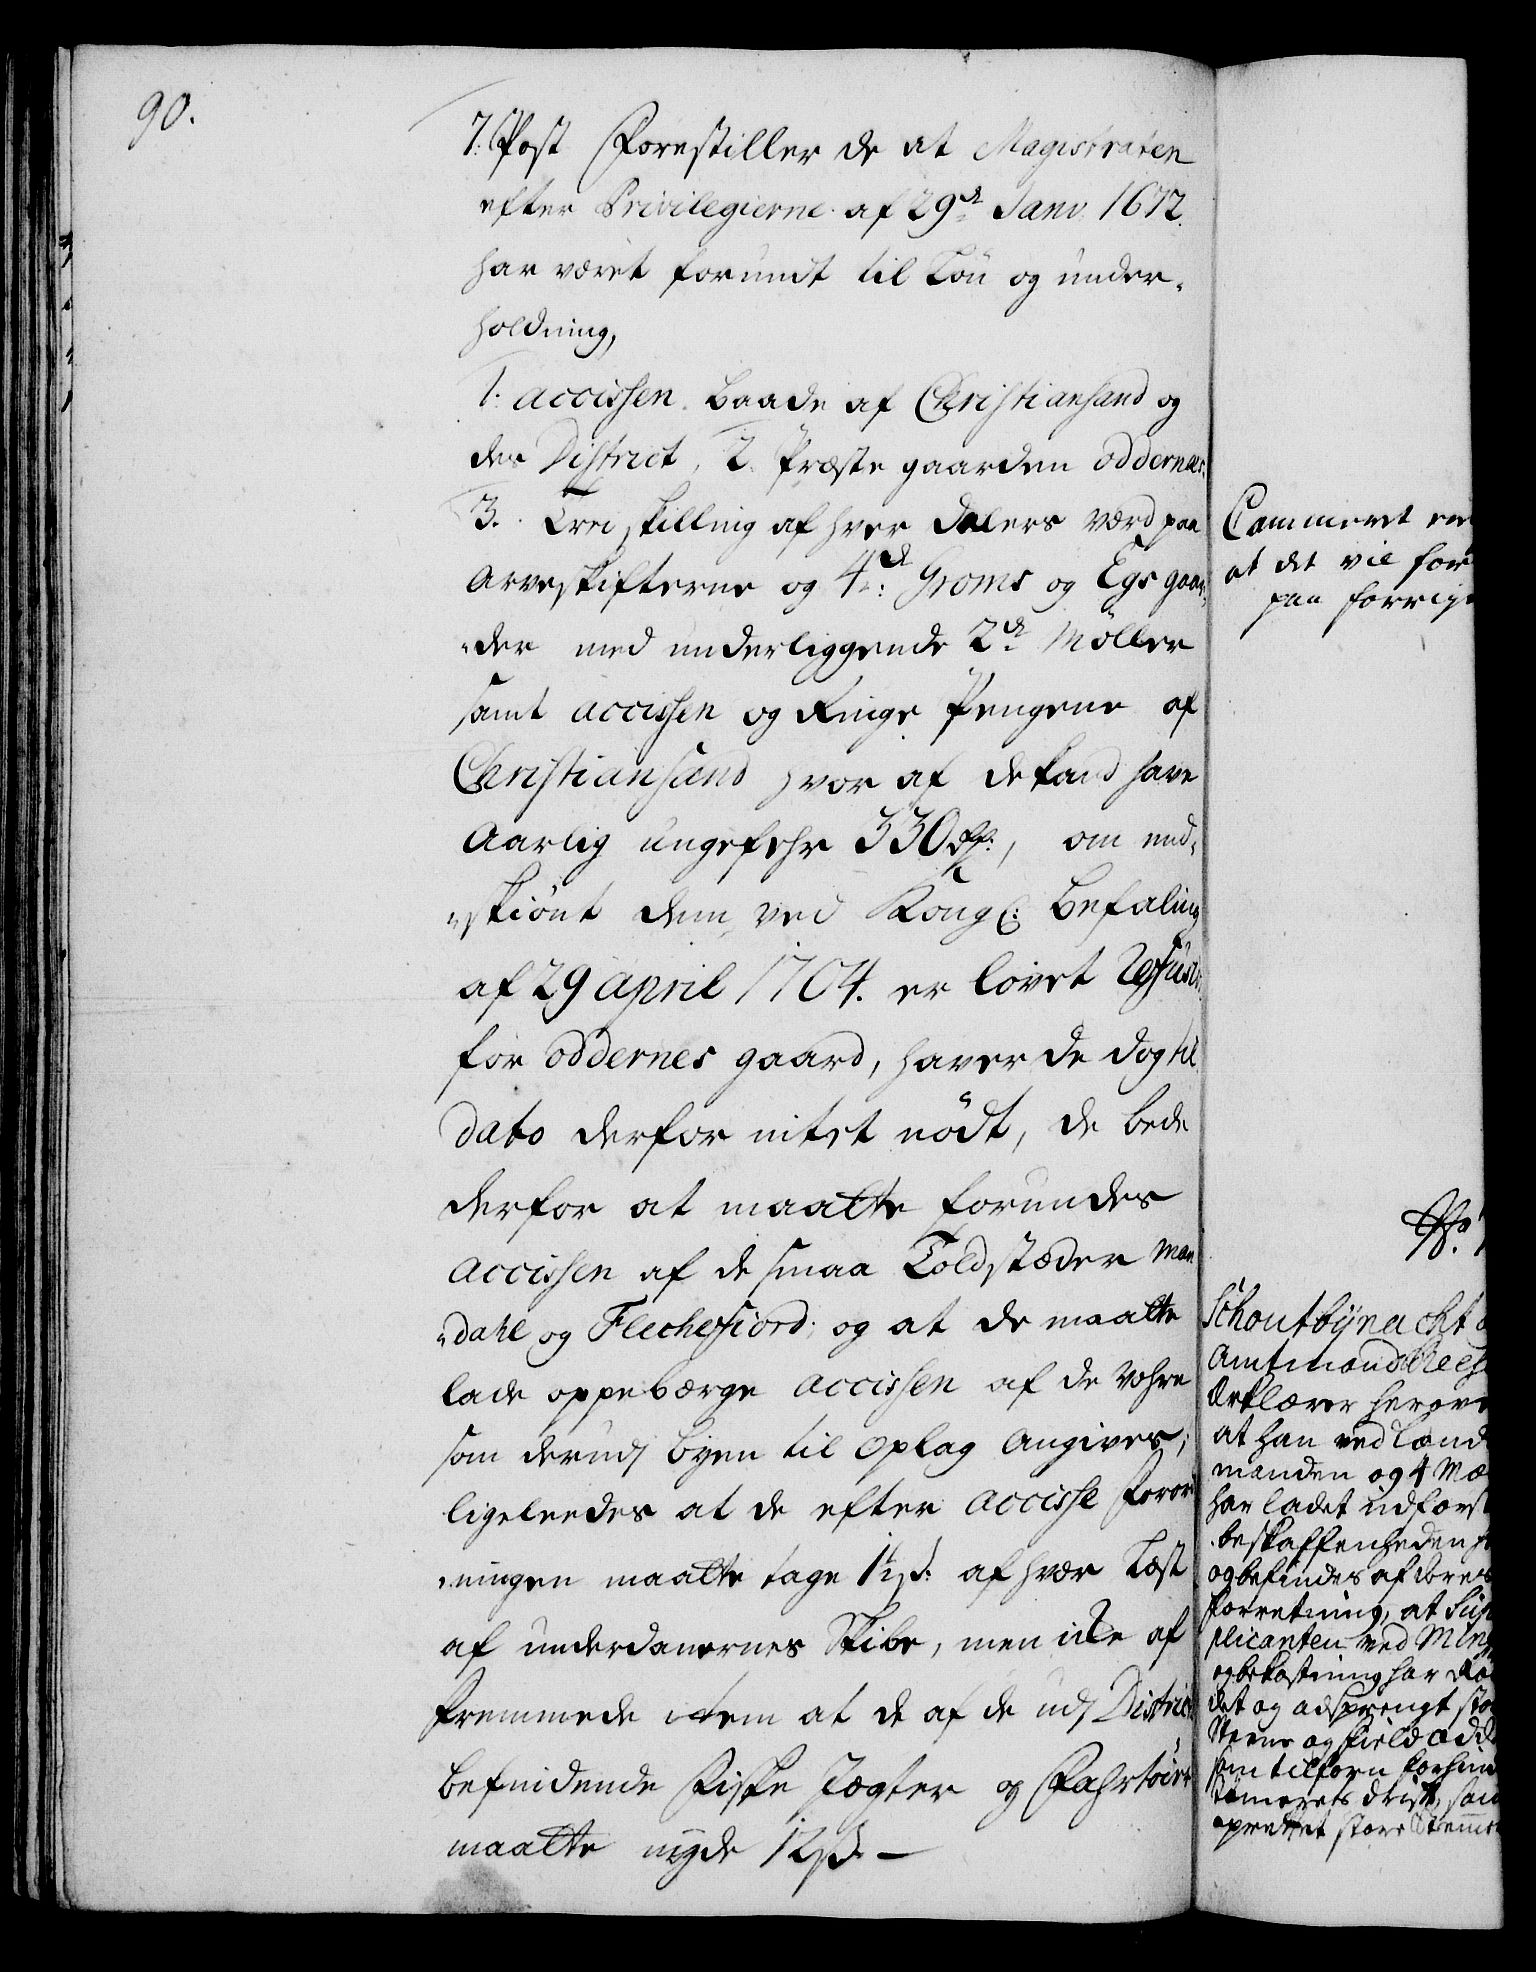 90.
7: Post Forestiller de at Magistraten
efter Privilegierne af 29de Janv. 1672.
har været forundt til Løn og under-
holdning,
1: accissen baade af Christiansand og
des District, 2. Præste gaarden oddernes.
3. Trei skilling af hver dalers værd paa
Arveskifterne og 4de: Groms og Egs gaar-
-der med underliggende 2de Møller
samt accissen og Ringe Pengene af
Christiansand hvor af de kand have
Aarlig ungefehr 330 Rd:, om end-
-skiønt dem ved Kongl: Befaling
af 29 april 1704. er lovet Refusi:
for oddernes gaard, haver de dog til
dato derfor intet nødt, de bede
derfor at maatte forundes
Accissen af de smaa Toldstæder Man
-dahl og Flechefiord; og at de maatte
lade oppebærge accissen af de Vahre
som derudj byen til Oplag Angives;
ligeleedes at de efter accisse Foror
-ningen maatte tage 1½ s: af hver Læst
af underdanernes Skibe, men icke af
Fremmede item at de af de udj District
befindende Fiske Jægter og Fahrtøier
maatte nyde 12 s. —
Cammeret er
at det vil for
paa forrige
No. 1
Schoutbynacht
Amtmand
Erklærer herove
at han ved Lænds
manden og 4 Mæ
har ladet udforsk
beskaffenheden
og befindes af deres
Forretning, at Sup
plicanten ved
og bekostning har
det og udsprengt sto
Steene og Field
som tilforn forhin
Tømerets drift, sam
oprettet store Stemme